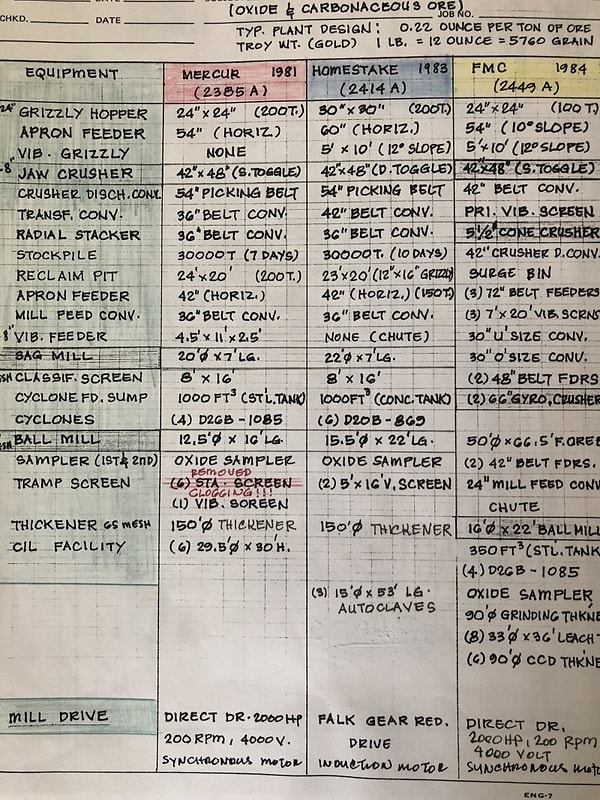 DATE
(OXIDE & CARBONACEOUS ORE)
JOB NO.
CHKD. DATE
TYP. PLANT DESIGN: 0.22 OUNCE PER TON OF ORE
TROY WT. (GOLD) 1 LB. = 12 OUNCE = 5760 GRAIN
EQUIPMENT MERCUR 1981 HOMESTAKE 1983 FMC 1984
(2385 A) (2414 A) (2449 A)
24" GRIZZLY HOPPER 24"x24" (200T.) 30"x30" (200T.) 24"x24" (100T.)
APRON FEEDER 54" (HORIZ.) 60" (HORIZ.) 54" (10° SLOPE)
VIB. GRIZZLY NONE 5'x10' (12° SLOPE) 5'x10' (12° SLOPE)
-8" JAW CRUSHER 42"x48" (S.TOGGLE) 42"x48" (D.TOGGLE) 42"x48" (S.TOGGLE)
CRUSHER DISCH. CONV. 54" PICKING BELT 54" PICKING BELT 42" BELT CONV.
TRANSF. CONV. 36" BELT CONV. 42" BELT CONV. PRI. VIB. SCREEN
RADIAL STACKER 36" BELT CONV. 36" BELT CONV. 5 1/2' CONE CRUSHER
STOCKPILE 30000T (7 DAYS) 30000T. (10 DAYS) 42" CRUSHER D.CONV.
RECLAIM PIT 24'x20' (200T.) 23'x20' (12"x16" GRIZZLY) SURGE BIN
APRON FEEDER 42" (HORIZ.) 42" (HORIZ.) (150T.) (3) 72" BELT FEEDERS
MILL FEED CONV. 36" BELT CONV. 36" BELT CONV. (3) 7'x20' VIB. SCRNS
8" VIB. FEEDER 4.5'x11'x2.5' NONE (CHUTE) 30" U'SIZE CONV.
SAG MILL 20'Ø x 7' LG. 22'Ø x 7' LG. 30" O'SIZE CONV.
CLASSIF. SCREEN 8' x 16' 8' x 16' (2) 48" BELT FDRS
CYCLONE FD. SUMP 1000 FT³ (STL.TANK) 1000FT³ (CONC.TANK) (2) 66" GYRO. CRUSHER
CYCLONES (4) D26B-1085 (6) D20B-869
BALL MILL 12.5'Ø x 16' LG. 15.5'Ø x 22' LG. 50'Ø x 66.5' F.ORE
SAMPLER (1ST & 2ND) OXIDE SAMPLER OXIDE SAMPLER (2) 42" BELT FDRS.
REMOVED
TRAMP SCREEN (6) STA. SCREEN (2) 5'x16' V. SCREEN 24" MILL FEED CONV
CLOGGING!!!
(1) VIB. SCREEN CHUTE
THICKENER 65 MESH 150'Ø THICKENER 150'Ø THICKENER 16'Ø x 22' BALL MILL
CIL FACILITY (6) 29.5'Ø x 30'H. 350 FT³ (STL. TANK
(4) D26B-1085
(3) 15'Ø x 53' LG. OXIDE SAMPLER
AUTOCLAVES 90'Ø GRINDING THKNE
(8) 33'Ø x 36' LEACH T
(6) 90'Ø CCD THK'NE
MILL DRIVE DIRECT DR. 2000 HP FALK GEAR RED. DIRECT DR.
200 RPM, 4000 V. DRIVE 2000 HP, 200 RPM
4000 VOLT
SYNCHRONOUS MOTOR INDUCTION MOTOR SYNCHRONOUS MOT
ENG-7